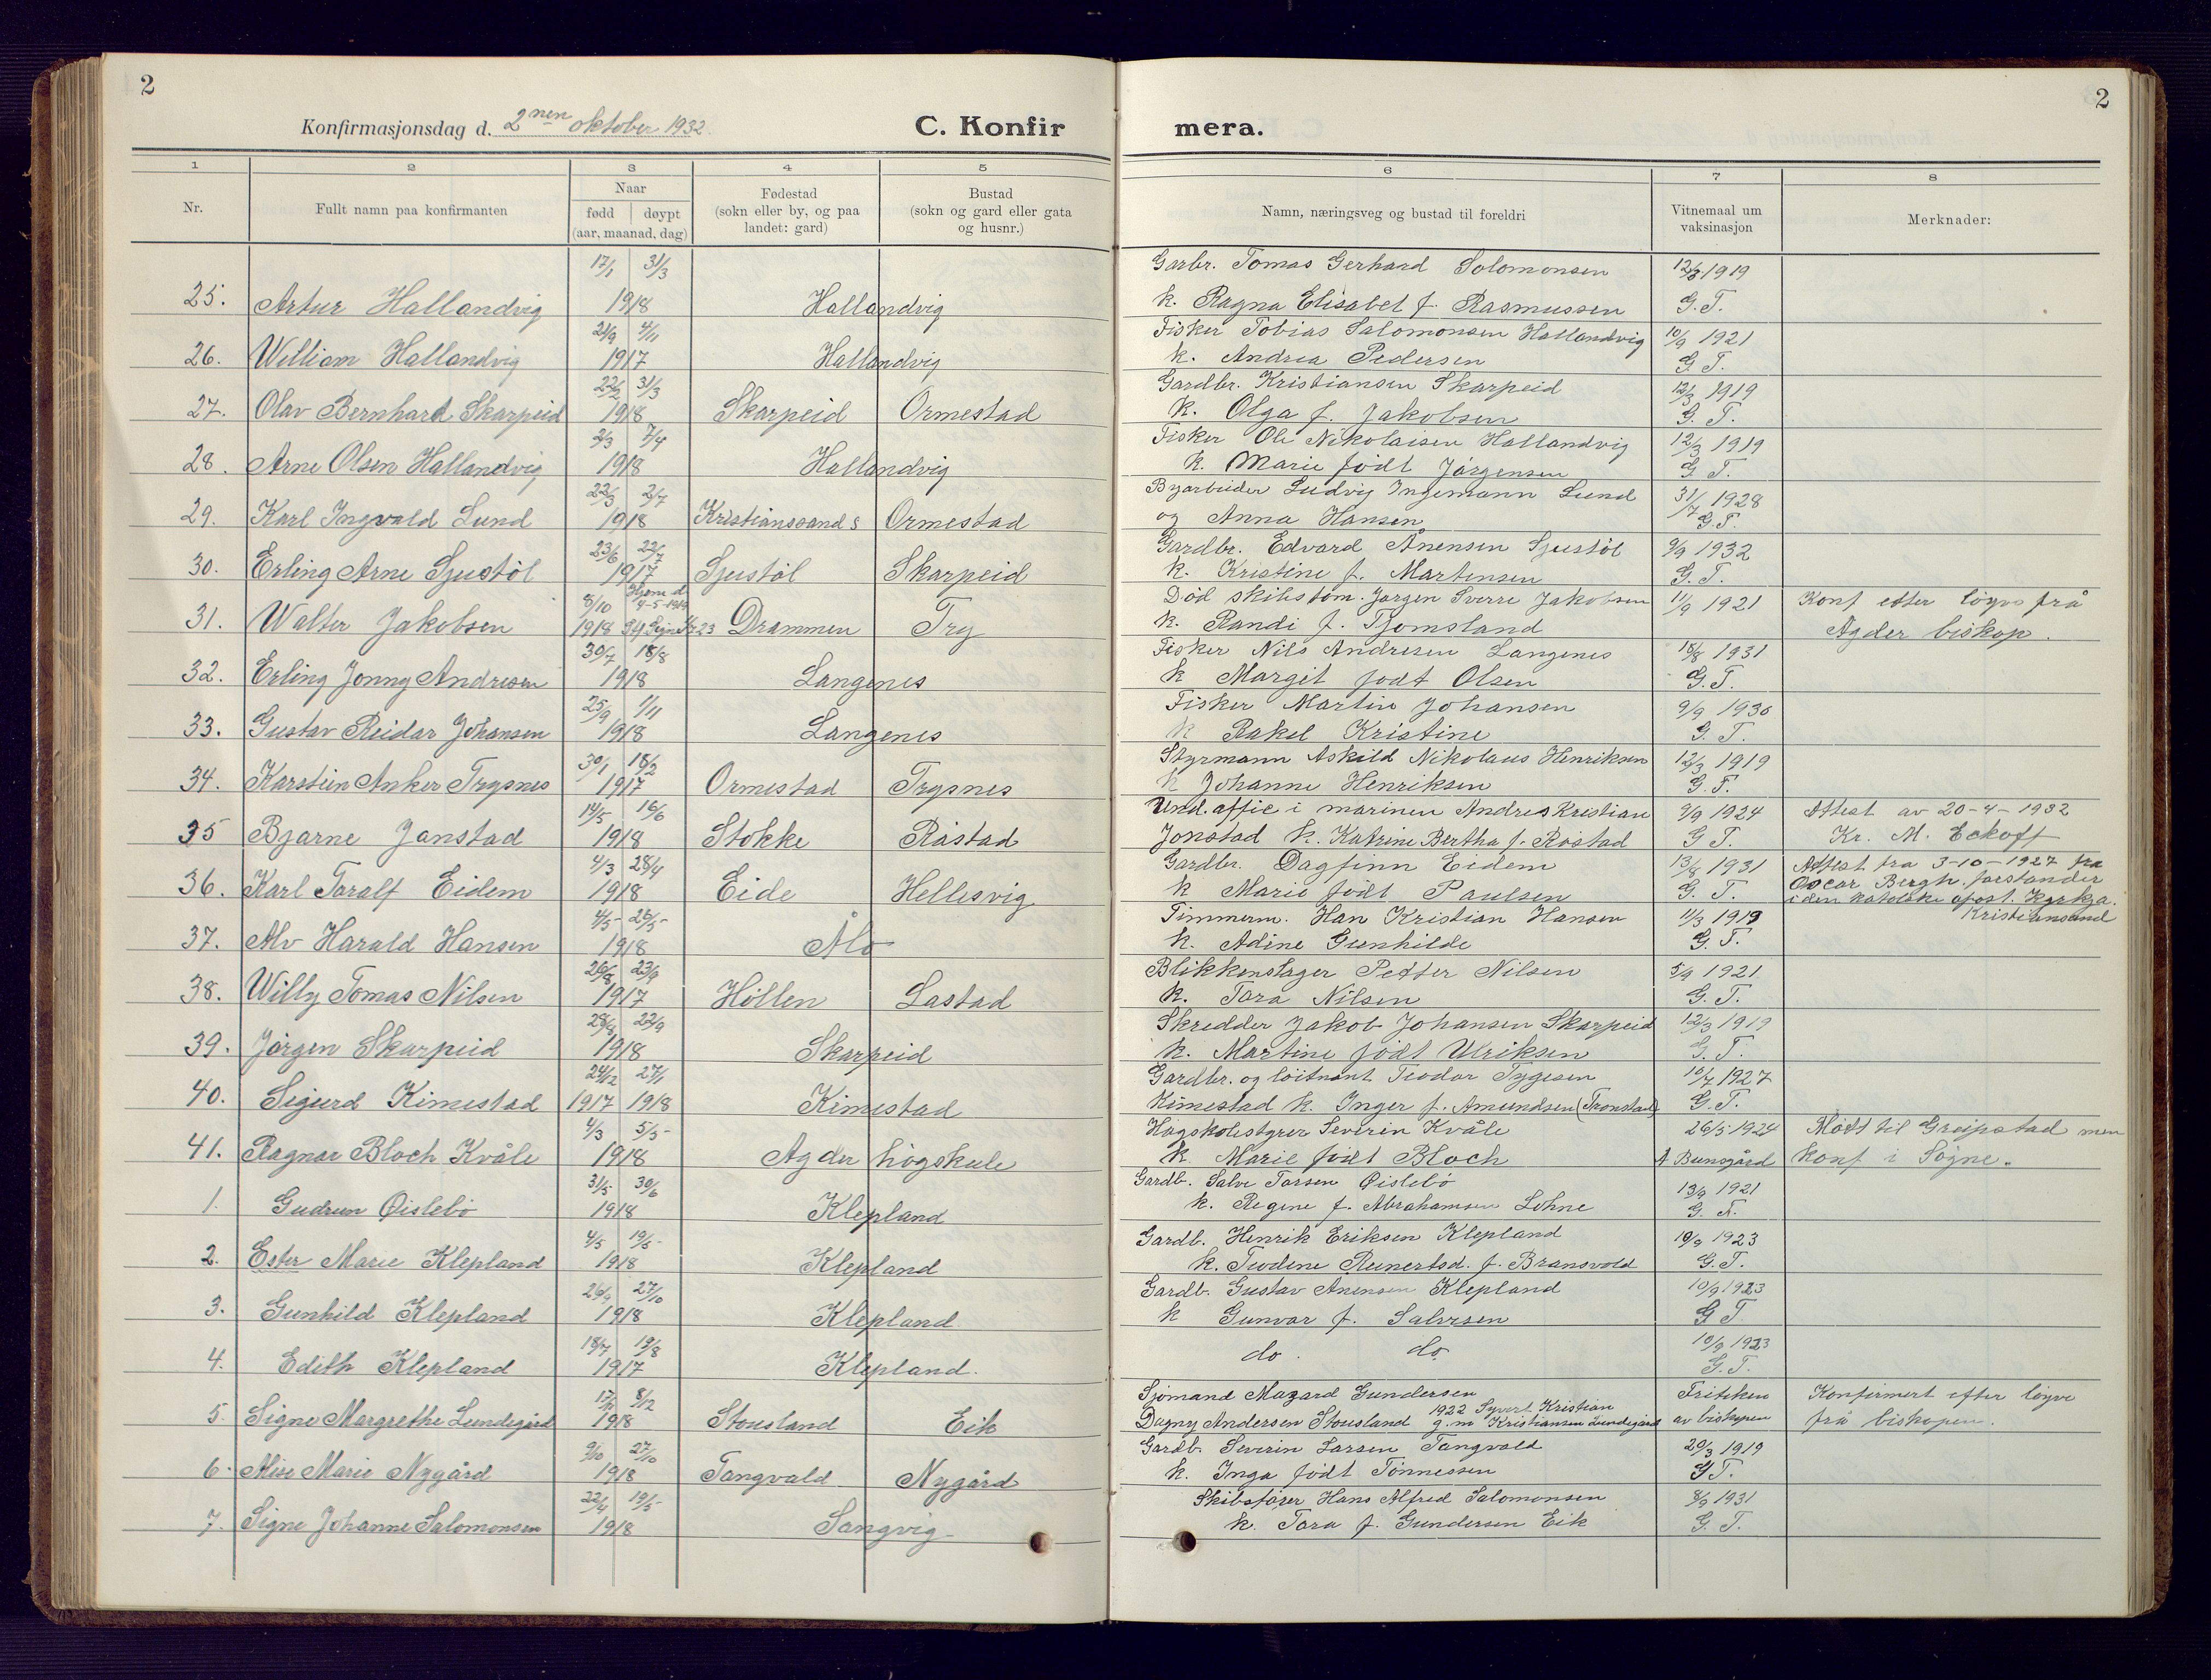 2
Konfirmasjonsdag d. 2nen oktober 1932.
C. Konfir
mera.
2
1 2 3 4 5 6 7 8
Nr.
Fullt namn paa konfirmanten
Naar
fødd | døypt
(aar, maanad, dag)
Fødestad
(sokn eller by, og paa
landet: gard)
Bustad
(sokn og gard eller gata
og husnr.)
Namn, næringsveg og bustad til foreldri
Vitnemaal um
vaksinasjon
Merknader:
17/1 31/3 Garbr. Tomas Gerhard Solomonsen 12/3 1919
25. Artur Hallandvig 1918 Hallandvig k. Ragna Elisabet f. Rasmussen G.T.
21/9 4/11 Fisker Tobias Salomonsen Hallandvig 10/9 1921
26. William Hallandvig 1917 Hallandvig k. Andrea Pedersen G.T.
22/2 31/3 Gardbr. Kristiansen Skarpeid 12/3 1919
27. Olav Bernhard Skarpeid 1918 Skarpeid Ormestad k. Olga f. Jakobsen G.T.
2/3 7/4 Fisker Ole Nikolaisen Hallandvig 12/3 1919
28. Arne Olsen Hallandvig 1918 Hallandvig k. Marie født Jørgensen G.T.
22/3 2/7 Byarbeider Ludvig Ingemann Lund 31/7 1928
29. Karl Ingvald Lund 1918 Kristianssand s Ormestad og Anna Hansen G.T.
23/6 22/7 Gardbr. Edvard Ånensen Sjustøl 9/9 1932
30. Erling Arne Sjustøl 1917 Sjustøl Skarpeid k. Kristine f. Martensen G.T.
8/10 Hjeme d. 4-5-1919 Død skibstøm. Jørgen Sverre Jakobsen 11/9 1921 Konf etter løgve frå
31. Walter Jakobsen 1918 Drammen Try k. Randi f. Tjomsland Agder biskop.
30/7 18/8 Fisker Nils Andresen Langenes 18/8 1931
32. Erling Jonny Andresen 1918 Langenes k Margit født Olsen G.T.
25/9 1/11 Fisker Martin Johansen 9/9 1930
33. Gustav Reidar Johansen 1918 Langenes k Rakel Kristine G.T.
30/1 18/2 Styrmann Askild Nikolaus Henriksen 12/3 1919
34. Karstein Anker Trysnes 1917 Ormestad Trysnes k Johanne Henriksen G.T.
14/5 16/6 Und.offic i marinen Andres Kristian 9/9 1924 Attest av 20-4-1932
35 Bjarne Jonstad 1918 Stokke Råstad Jonstad k. Katrine Bertha f. Råstad G T. Kr. M. Eckoff
4/3 28/4 Gardbr. Dagfinn Eidem 13/8 1931 Attest fra 3-10-1927 fra
36. Karl Toralf Eidem 1918 Eide Hellesvig k Marie født Paulsen G.T. Oscar Bergh. forstander
i den katolske apost. Kyrkja.
Kristiansand
4/5 26/5 Timmerm. Han Kristian Hansen 11/3 1919
37. Alv Harald Hansen 1918 Ålo k. Adine Gunhilde G.T.
26/8 23/9 Blikkenslager Petter Nilsen 5/9 1921
38. Willy Tomas Nilsen 1917 Høllen Lastad k. Tora Nilsen G.T.
28/8 22/9 Skredder Jakob Johansen Skarpeid 12/3 1919
39. Jørgen Skarpeid 1918 Skarpeid k. Martine født Ulriksen G.T.
24/12 27/1 Gardbr. og løitnant Teodor Tygesen 10/7 1927
40. Sigurd Kimestad 1917 1918 Kimestad Kimestad k. Inger f. Amundsen (Tronstad) G.T.
4/3 5/5 Høgskolestyrer Severin Kvåle 26/5 1924 Møtt til Greipstad men
41. Ragnar Bloch Kvåle 1918 Agder høgskule k Marie født Bloch konf i Søgne.
31/5 30/6 Gardb. Salve Tarsen Øislebø 13/9 1921
1. Gudrun Øislebø 1918 Klepland k. Regine f. Abrahamsen Lohne G.T.
4/5 19/5 Gardb. Henrik Eriksen Klepland 10/9 1923
2. Ester Marie Klepland 1918 Klepland k. Teodine Reinertsd. f. Bransvold G.T.
26/9 27/10 Gardb. Gustav Anensen Klepland 10/9 1923
3. Gunhild Klepland 1918 Klepland k Gunvor f. Salvesen G T.
18/7 19/8 do. do. 10/9 1923
4. Edith Klepland 1917 Klepland. G.T.
17/10 8/12 Sjømand Mazard Gundersen Friteken Konfirmert efter løgve
1922 Syvert Kristian
5. Signe Margrethe Lundegård 1918 Stousland Eik Dagny Andersen Stousland g.m Kristiansen Lundegård av biskopen frå biskopen.
9/10 27/10 Gardb. Severin Larsen Tangvald 20/3 1919
6. Alise Marie Nygård 1918 Tangvald Nygård k. Inga født Tønnessen G T.
22/4 19/5 Skibsfører Hans Alfred Salomonsen 8/9 1931
7. Signe Johanne Salomonsen 1918 Langvig k. Tora f. Gundersen Eik G.T.